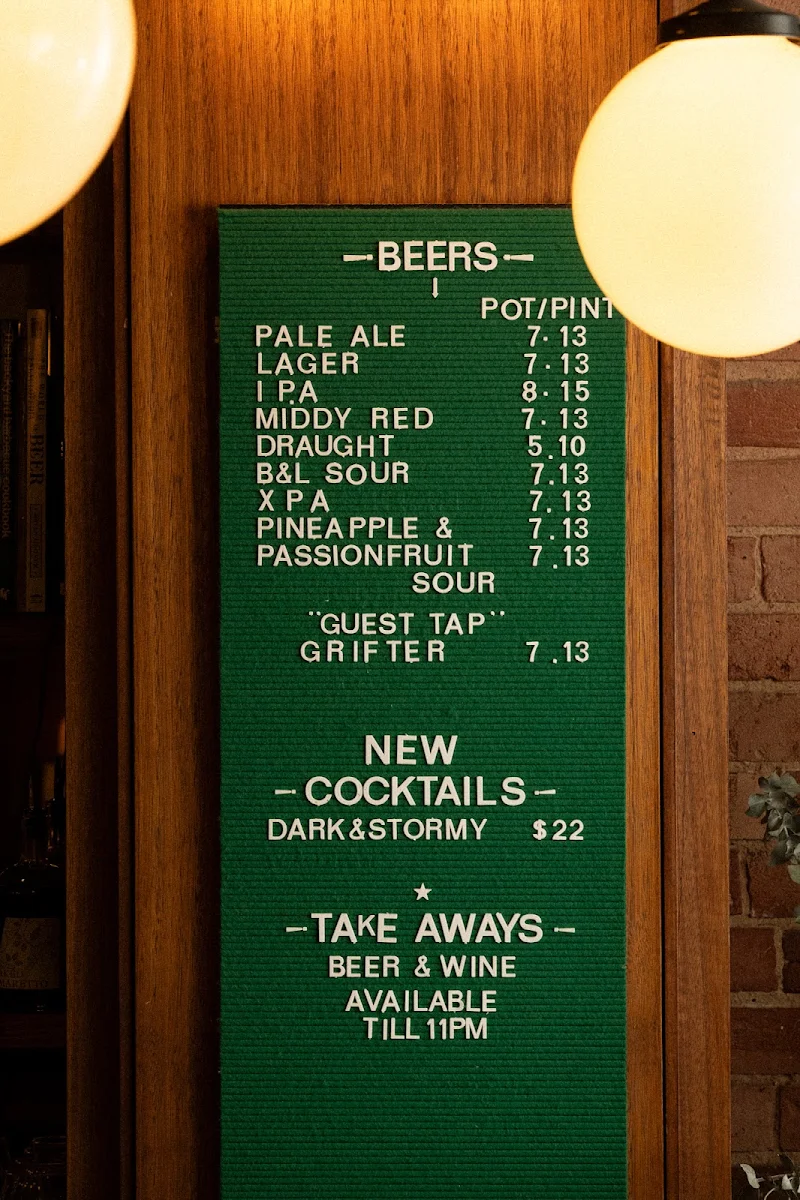 -BEERS-
↓
POT/PINT
PALE ALE 7. 13
LAGER 7.13
I P.A 8. 15
MIDDY RED 7. 13
DRAUGHT 5.10
B&L SOUR 7.13
X P A 7.13
PINEAPPLE & 7.13
PASSIONFRUIT 7.13
SOUR
"GUEST TAP"
GRIFTER 7.13
NEW
-COCKTAILS-
DARK&STORMY $22
★
-TAKE AWAYS-
BEER & WINE
AVAILABLE
TILL 11PM
BEER